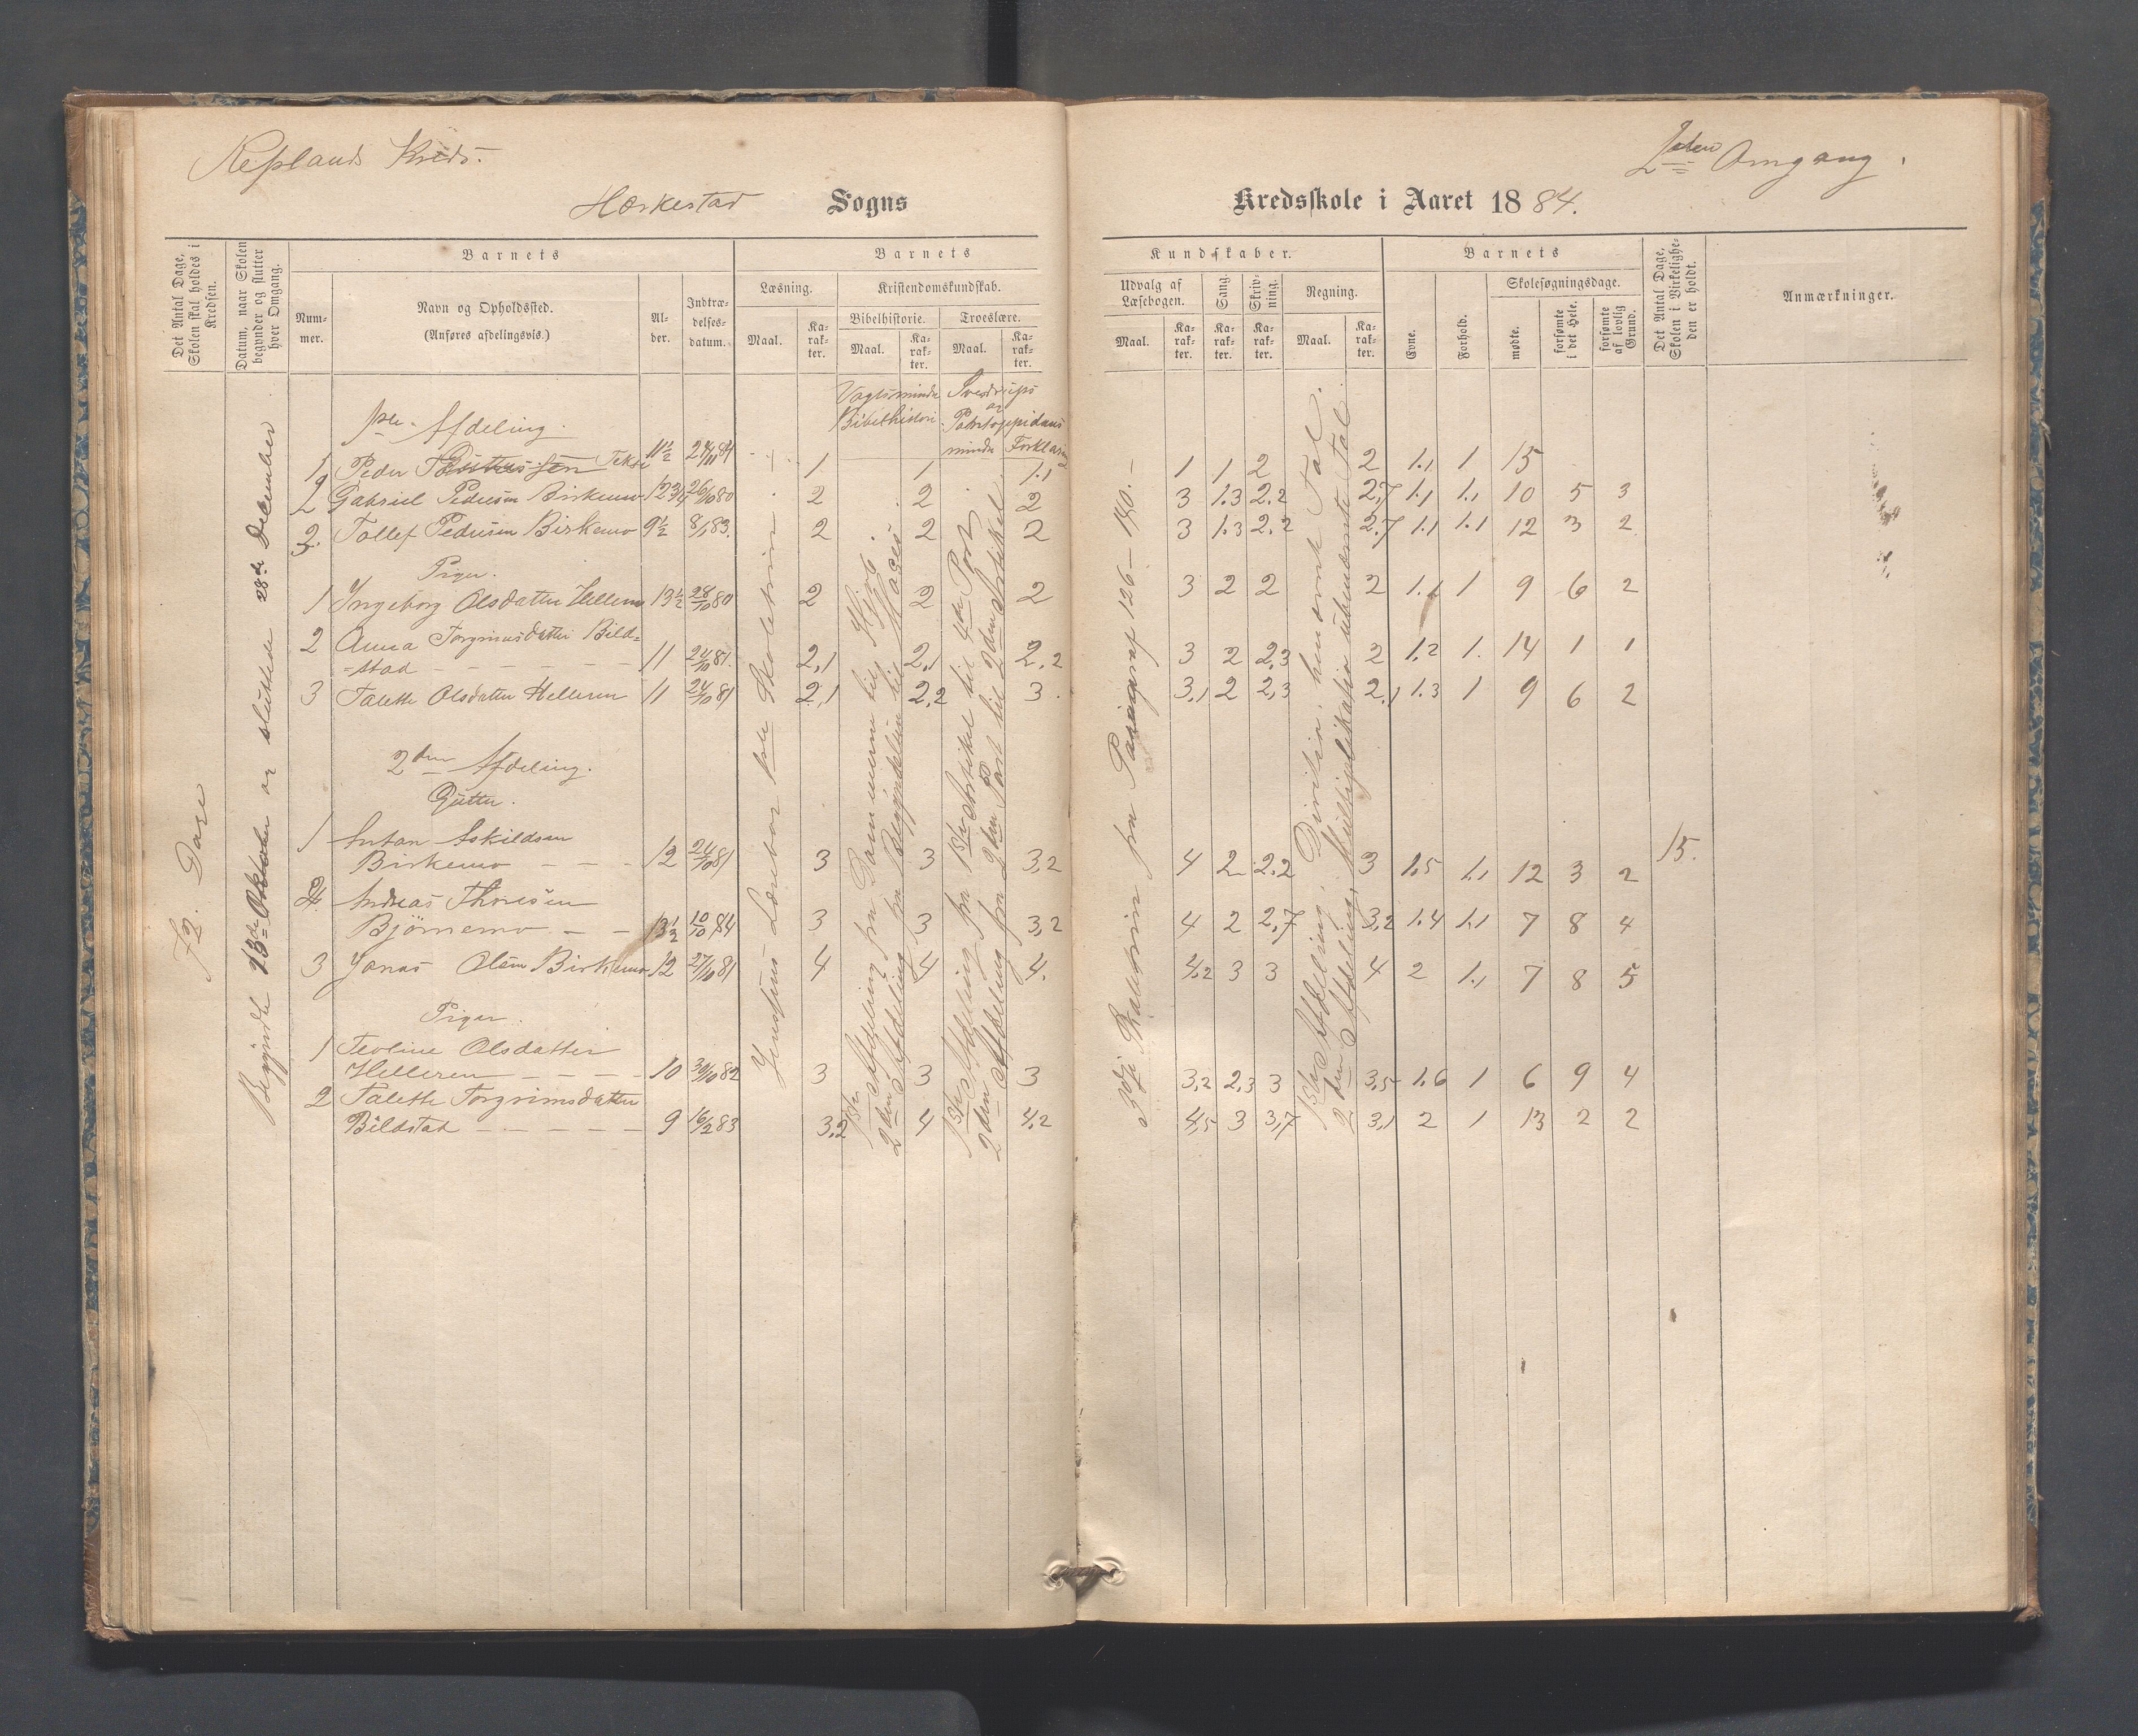 Refslands Kreds.
2den Omgang.
Hæskestad Sogns
Kredsskole i Aaret 1884.
Det Antal Dage, Skolen skal holdes i Kredsen.
Datum, naar Skolen begynder og slutter hver Omgang.
Barnets
Nummer.
Navn og Opholdssted.
(Anføres afdelingsvis.)
Alder.
Indtrædelsesdatum.
Barnets
Læsning.
Maal.
Karakter.
Kristendomskundskab.
Bibelhistorie.
Maal.
Karakter.
Troeslære.
Maal.
Karakter.
Kundskaber.
Udvalg af Læsebogen.
Maal.
Karakter.
Sang.
Karakter.
Skrivning.
Karakter.
Regning.
Maal.
Karakter.
Barnets
Evne.
Forhold.
Skolesøgningsdage.
mødte.
forsømte i det Hele.
forsømte af lovlig Grund.
Det Antal Dage, Skolen i Virkeligheden er holdt.
Anmærkninger.
72. Dage
Begyndte 13de Oktober og sluttede 28de December
Vogtsmindre Bibelhistori
Sverdrups og Pontoppidans mindre Forklaring
1ste Afdeling.
1 Peder Tekse 11½ 24/11 84 1 1 1.1 1 1 2 2 1.1 1 15
2 Gabriel Pedersen Birkemo 12¾ 26/10 80 2 2 2 3 1.3 2.2 2,7 1.1 1.1 10 5 3
3. Tollef Pedersen Birkemo 9½ 8/1 83. 2 2 2 3 1.3 2.2 2.7 1.1 1.1 12 3 2
Piger.
1 Ingeborg Olsdatter Helleren 13½ 28/10 80 2 2 2 3 2 2 2 1.1 1 9 6 2
2 Anna Torgrimsdatter Bild=
=stad 11 24/10 81. 2,1 2,1 2,2 3 2 2,3 2 1.2 1. 14 1 1
3 Talette Olsdatter Helleren 11 24/10 81 2,1 2,2 3. 3,1 2 2,3 2.1 1.3 1 9 6 2
2den Afdeling.
Gutter.
1 Anton Askildsen
Birkemo 12 24/10 81 3 3 3,2 4 2 2.2 3 1.5 1.1 12 3 2 15.
2 Andreas Thoresen
Björnemo 13½ 10/10 84 3 3 3,2 4 2 2,7 3,2 1.4 1.1 7 8 4
3 Jonas Olsen Birkemo 12 27/10 81 4 4 4. 4,2 3 3 4 2 1.1 7 8 5
Piger.
1 Teoline Olsdatter
Helleren 10 30/10 82 3 3 3 3,2 2,3 3 3,5 1.6 1 6 9 4
2 Talette Torgrimsdatter
Bildstad 9 16/2 83 3,2 4 4,2 4,5 3 3,7 3,1 2 1 13 2 2
Jensens Læsebog 1ste Skoletrin
1ste Afdeling fra Dommerne til
2den Afdeling fra Begyndelsen til Moses.
1ste Afdeling fra 1ste Artikel til 4de Part
2den Afdeling fra 2den Part til 2den Artikel
3die fra Paragraf 126-140.
1ste Afdeling, Division, benævnte Tal.
2den Afdeling, Multiplikation ubenævnte Tal